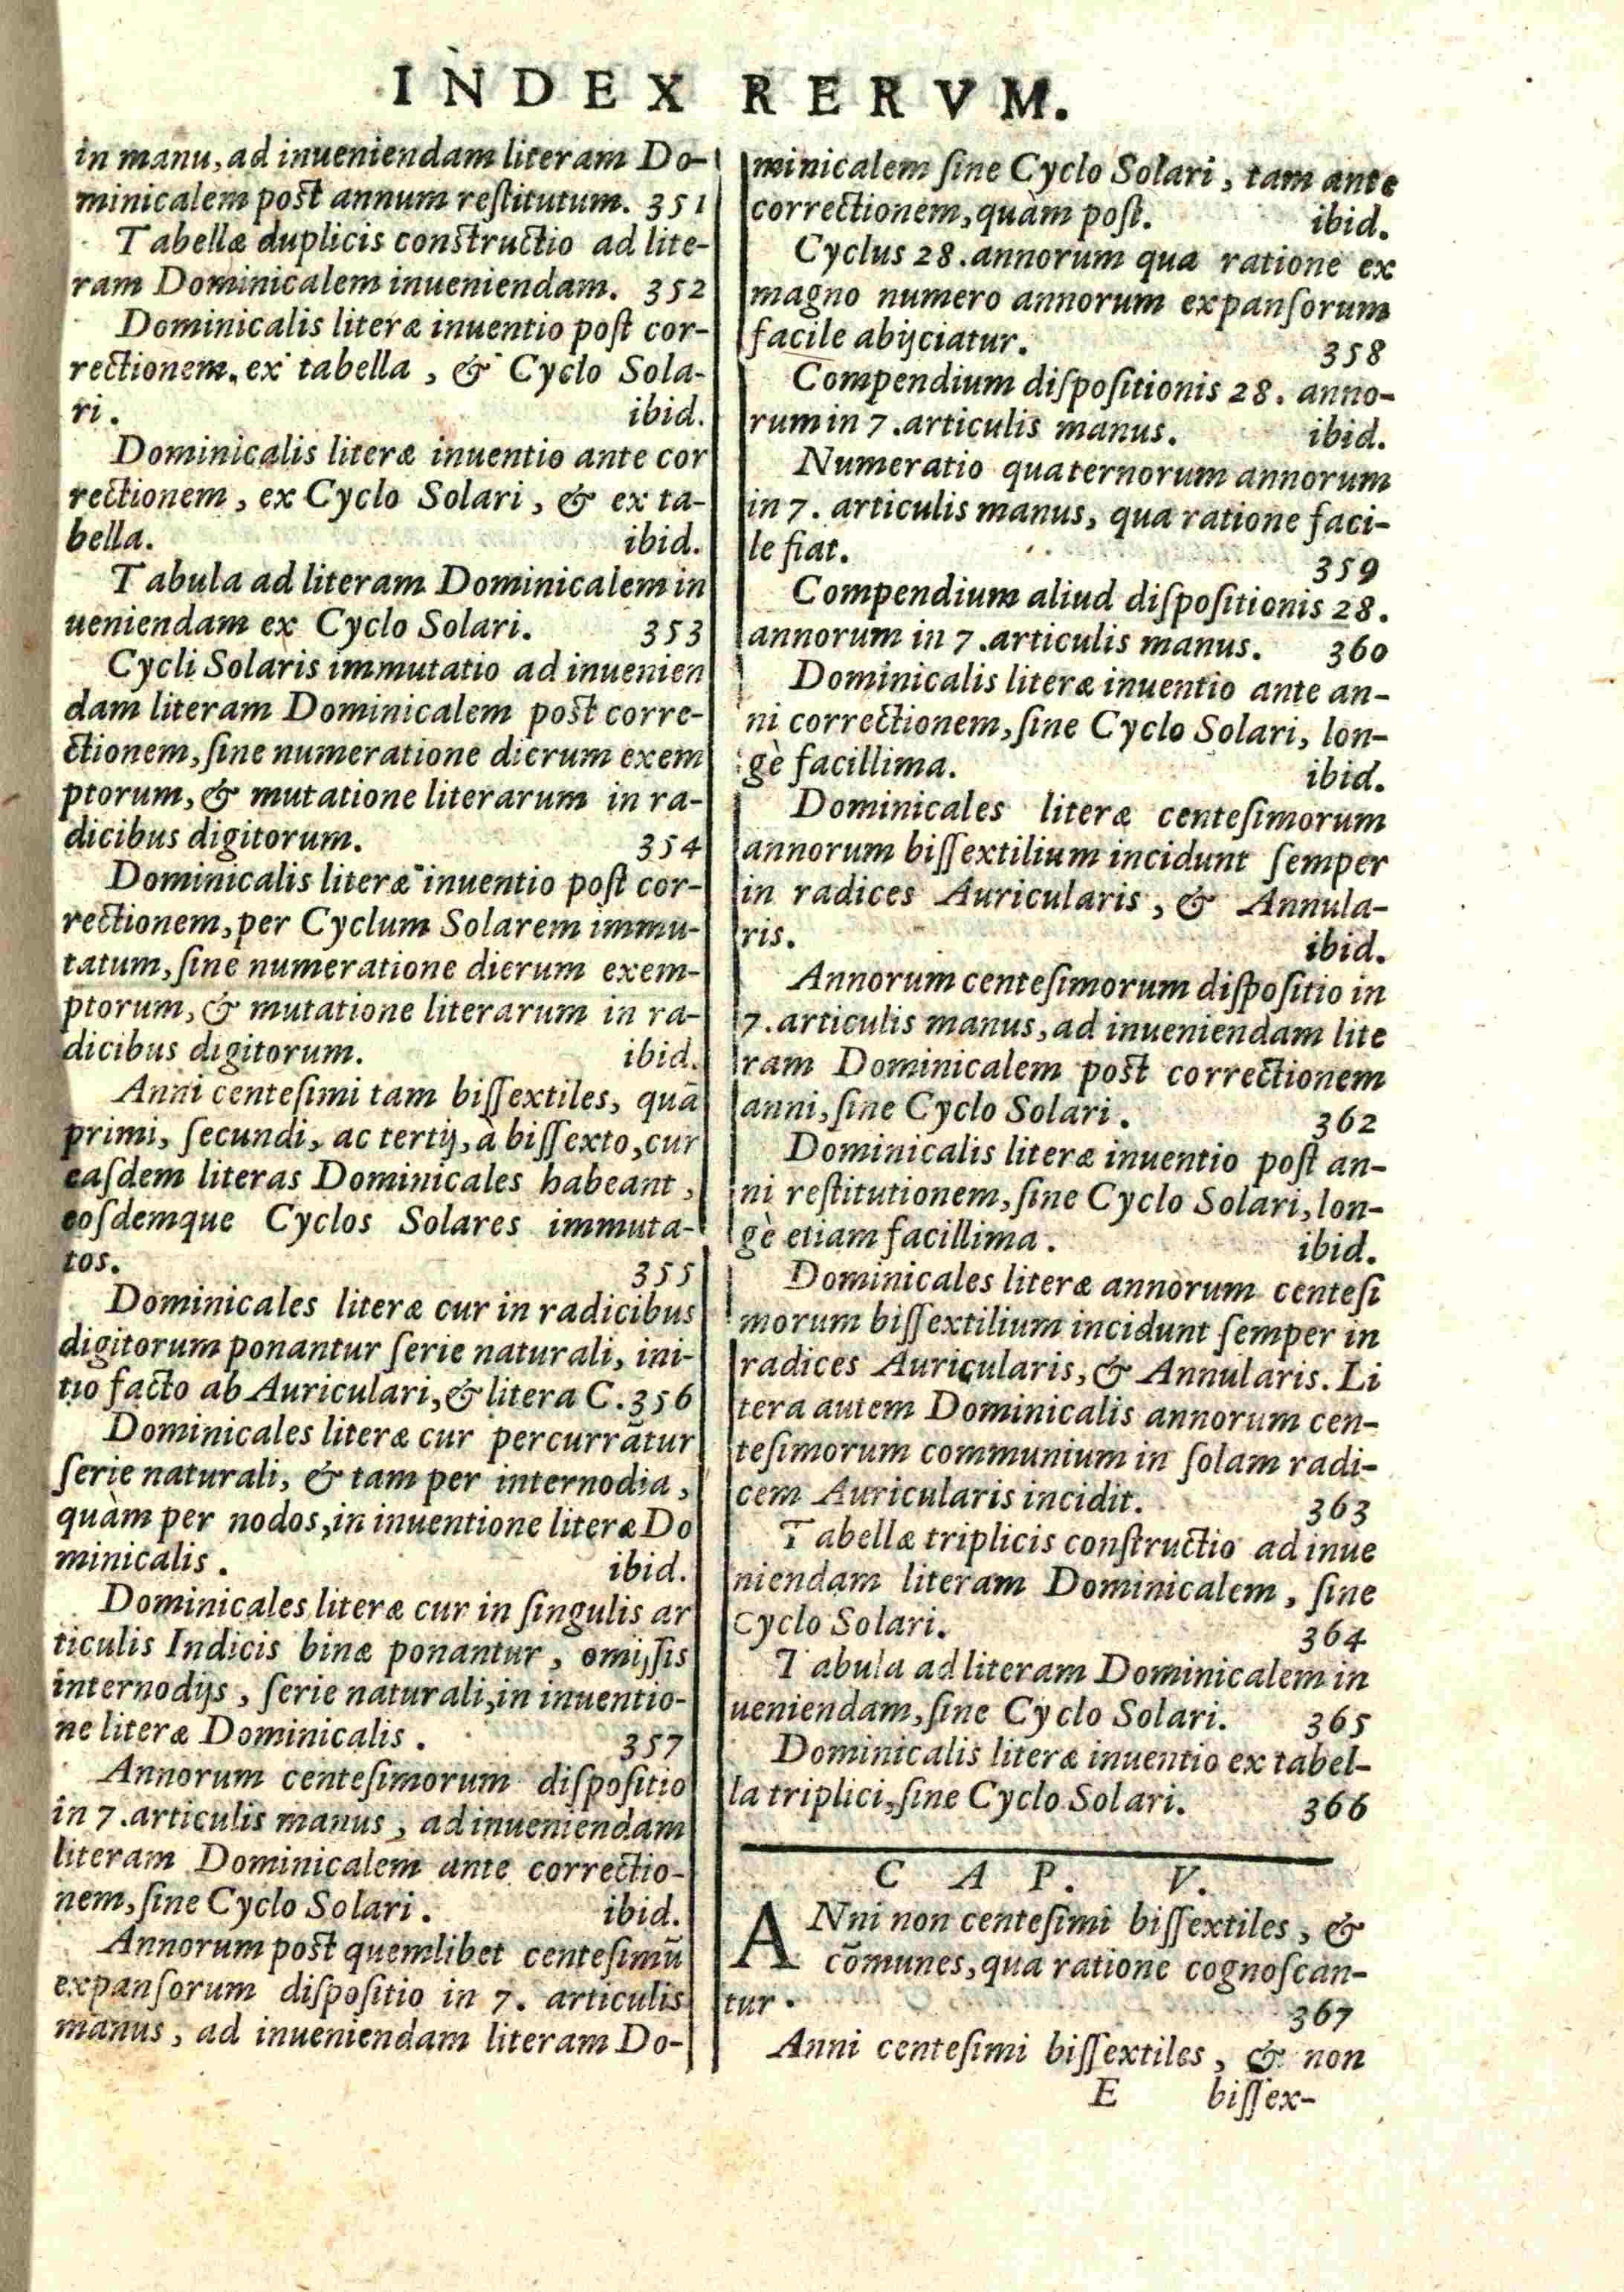 INDEX RERVM.
in manu, ad inueniendam literam Do-
minicalem post annum reſtitutum. 351
Tabellæ duplicis constructio ad lite-
ram Dominicalem inueniendam. 352
Dominicalis literæ inuentio poſt cor-
rectionem, ex tabella, & Cyclo Sola-
ri. ibid.
Dominicalis literæ inuentio ante cor
rectionem, ex Cyclo Solari, & ex ta-
bella. ibid.
Tabula ad literam Dominicalem in
ueniendam ex Cyclo Solari. 353
Cycli Solaris immutatio ad inuenien
dam literam Dominicalem post corre-
ctionem, ſine numeratione dierum exem
ptorum, & mutatione literarum in ra-
dicibus digitorum. 354
Dominicalis literæ inuentio poſt cor-
rectionem, per Cyclum Solarem immu-
tatum, ſine numeratione dierum exem-
ptorum, & mutatione literarum in ra-
dicibus digitorum. ibid.
Anni centeſimi tam biſſextiles, quā
primi, ſecundi, ac tertij, à biſſexto, cur
eaſdem literas Dominicales habeant,
eoſdemque Cyclos Solares immuta-
tos. 355
Dominicales literæ cur in radicibus
digitorum ponantur ſerie naturali, ini-
tio facto ab Auriculari, & litera C. 356
Dominicales literæ cur percurrātur
ſerie naturali, & tam per internodia,
quàm per nodos, in inuentione literæ Do
minicalis. ibid.
Dominicales literæ cur in ſingulis ar
ticulis Indicis binæ ponantur, omiſſis
internodijs, ſerie naturali, in inuentio-
ne literæ Dominicalis. 357
Annorum centeſimorum diſpoſitio
in 7. articulis manus, ad inueniendam
literam Dominicalem ante correctio-
nem, ſine Cyclo Solari. ibid.
Annorum post quemlibet centeſimū
expanſorum diſpoſitio in 7. articulis
manus, ad inueniendam literam Do-
minicalem ſine Cyclo Solari, tam ante
correctionem, quàm poſt. ibid.
Cyclus 28. annorum qua ratione ex
magno numero annorum expanſorum
facile abijciatur. 358
Compendium diſpoſitionis 28. anno-
rum in 7. articulis manus. ibid.
Numeratio quaternorum annorum
in 7. articulis manus, qua ratione faci-
le fiat. 359
Compendium aliud diſpoſitionis 28.
annorum in 7. articulis manus. 360
Dominicalis literæ inuentio ante an-
ni correctionem, ſine Cyclo Solari, lon-
gè facillima. ibid.
Dominicales literæ centeſimorum
annorum biſſextilium incidunt ſemper
in radices Auricularis, & Annula-
ris. ibid.
Annorum centeſimorum diſpoſitio in
7. articulis manus, ad inueniendam lite
ram Dominicalem post correctionem
anni, ſine Cyclo Solari. 362
Dominicalis literæ inuentio poſt an-
ni reſtitutionem, ſine Cyclo Solari, lon-
gè etiam facillima. ibid.
Dominicales literæ annorum centeſi
morum biſſextilium incidunt ſemper in
radices Auricularis, & Annularis. Li
tera autem Dominicalis annorum cen-
teſimorum communium in ſolam radi-
cem Auricularis incidit. 363
Tabellæ triplicis conſtructio ad inue
niendam literam Dominicalem, ſine
Cyclo Solari. 364
Tabula ad literam Dominicalem in
ueniendam, ſine Cyclo Solari. 365
Dominicalis literæ inuentio ex tabel-
la triplici, ſine Cyclo Solari. 366
CAP. V.
ANni non centeſimi biſſextiles, &
cōmunes, qua ratione cognoſcan-
tur. 367
Anni centeſimi biſſextiles, & non
E biſſex-